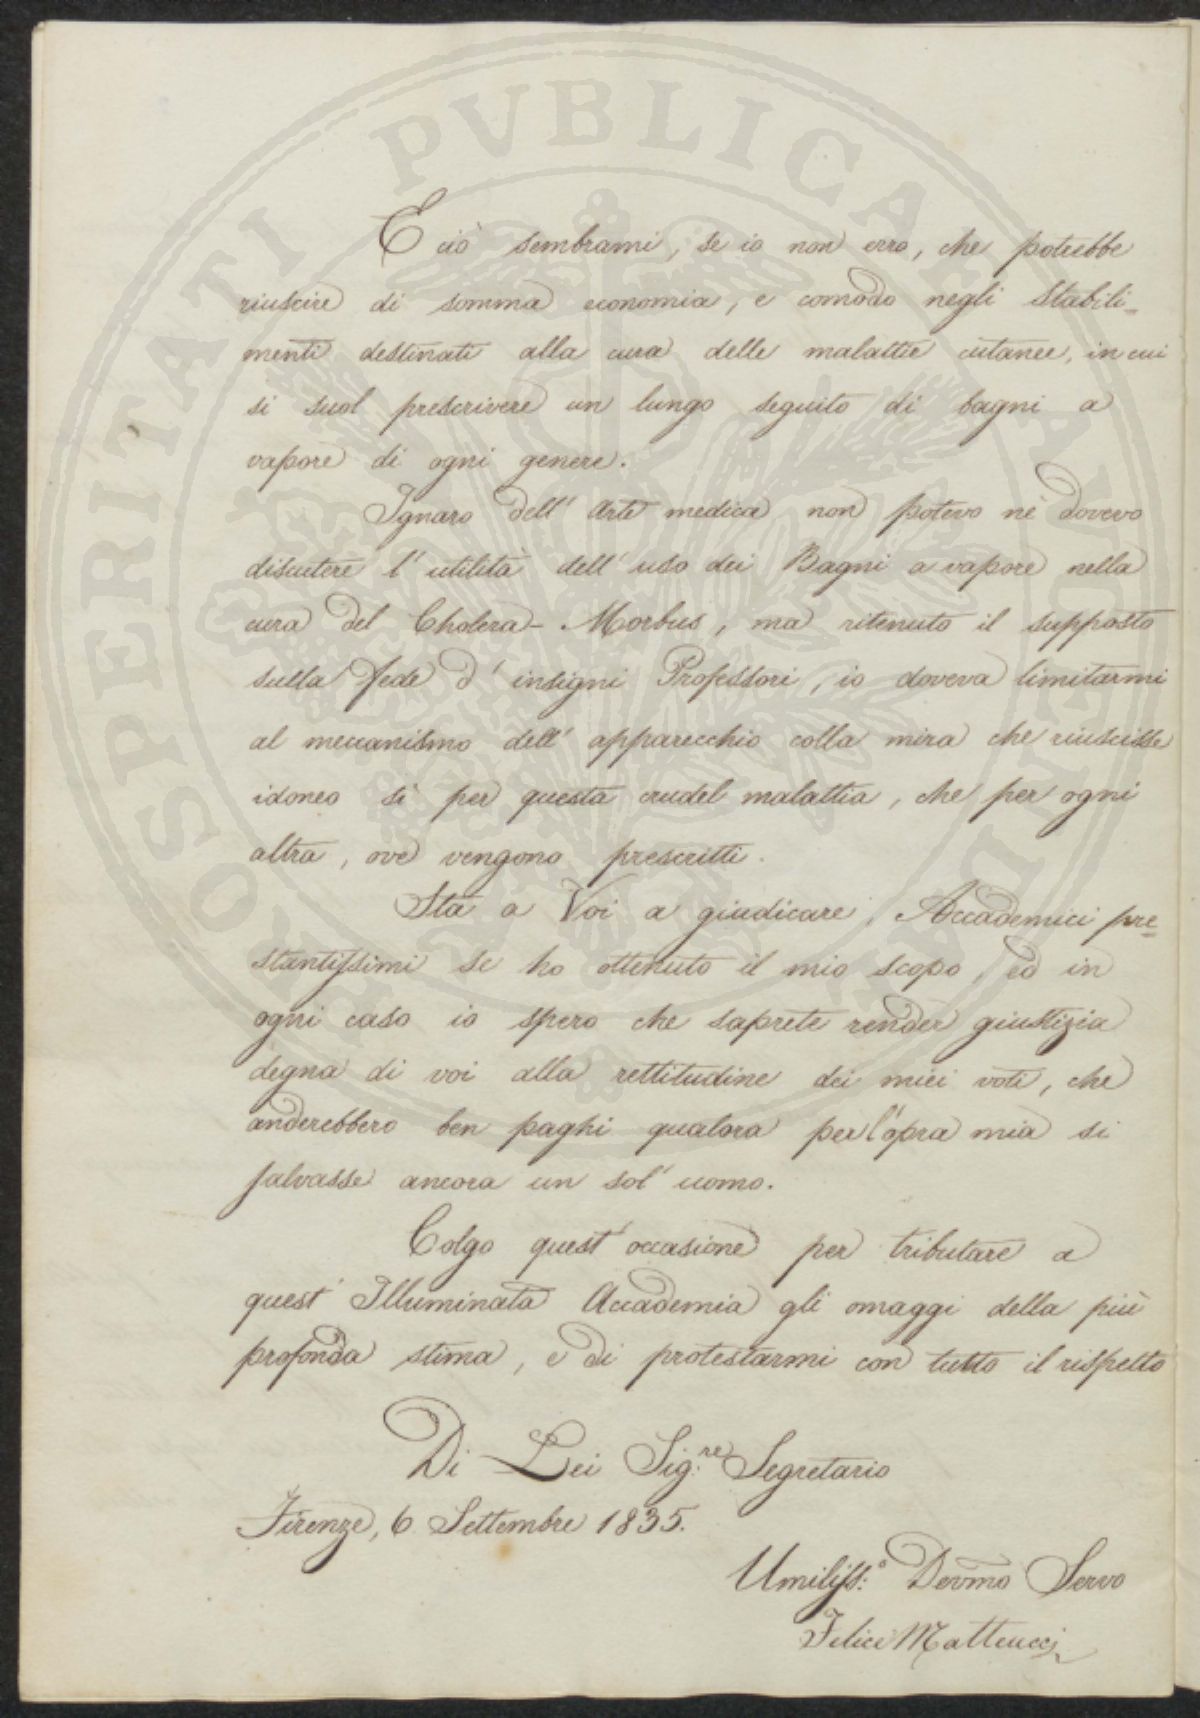 PROSPERITATI PVBLICAE AVGENDAE
E ciò sembrami, se io non erro, che potrebbe
riuscire di somma economia, e comodo negli Stabili=
menti destinati alla cura delle malattie cutanee, in cui
si suol prescrivere un lungo seguito di bagni a
vapore di ogni genere.
Ignaro dell' Arte medica non potevo nè dovevo
discutere l' utilità dell' uso dei Bagni a vapore nella
cura del Cholera-Morbus, ma ritenuto il supposto
sulla fede d' insigni Professori, io doveva limitarmi
al meccanismo dell' apparecchio colla mira che riuscisse
idoneo sì per questa crudel malattia, che per ogni
altra, ove vengono prescritti.
Sta a Voi a giudicare, Accademici pre=
stantissimi se ho ottenuto il mio scopo, ed in
ogni caso io spero che saprete render giustizia
degna di voi alla rettitudine dei miei voti, che
anderebbero ben paghi qualora per l'opra mia si
salvasse ancora un sol' uomo.
Colgo quest' occasione per tributare a
quest' Illuminata Accademia gli omaggi della più
profonda stima, e di protestarmi con tutto il rispetto
Di Lei Sig:re Segretario
Firenze, 6 Settembre 1835.
Umiliss:o Devmo Servo
Felice Matteucci